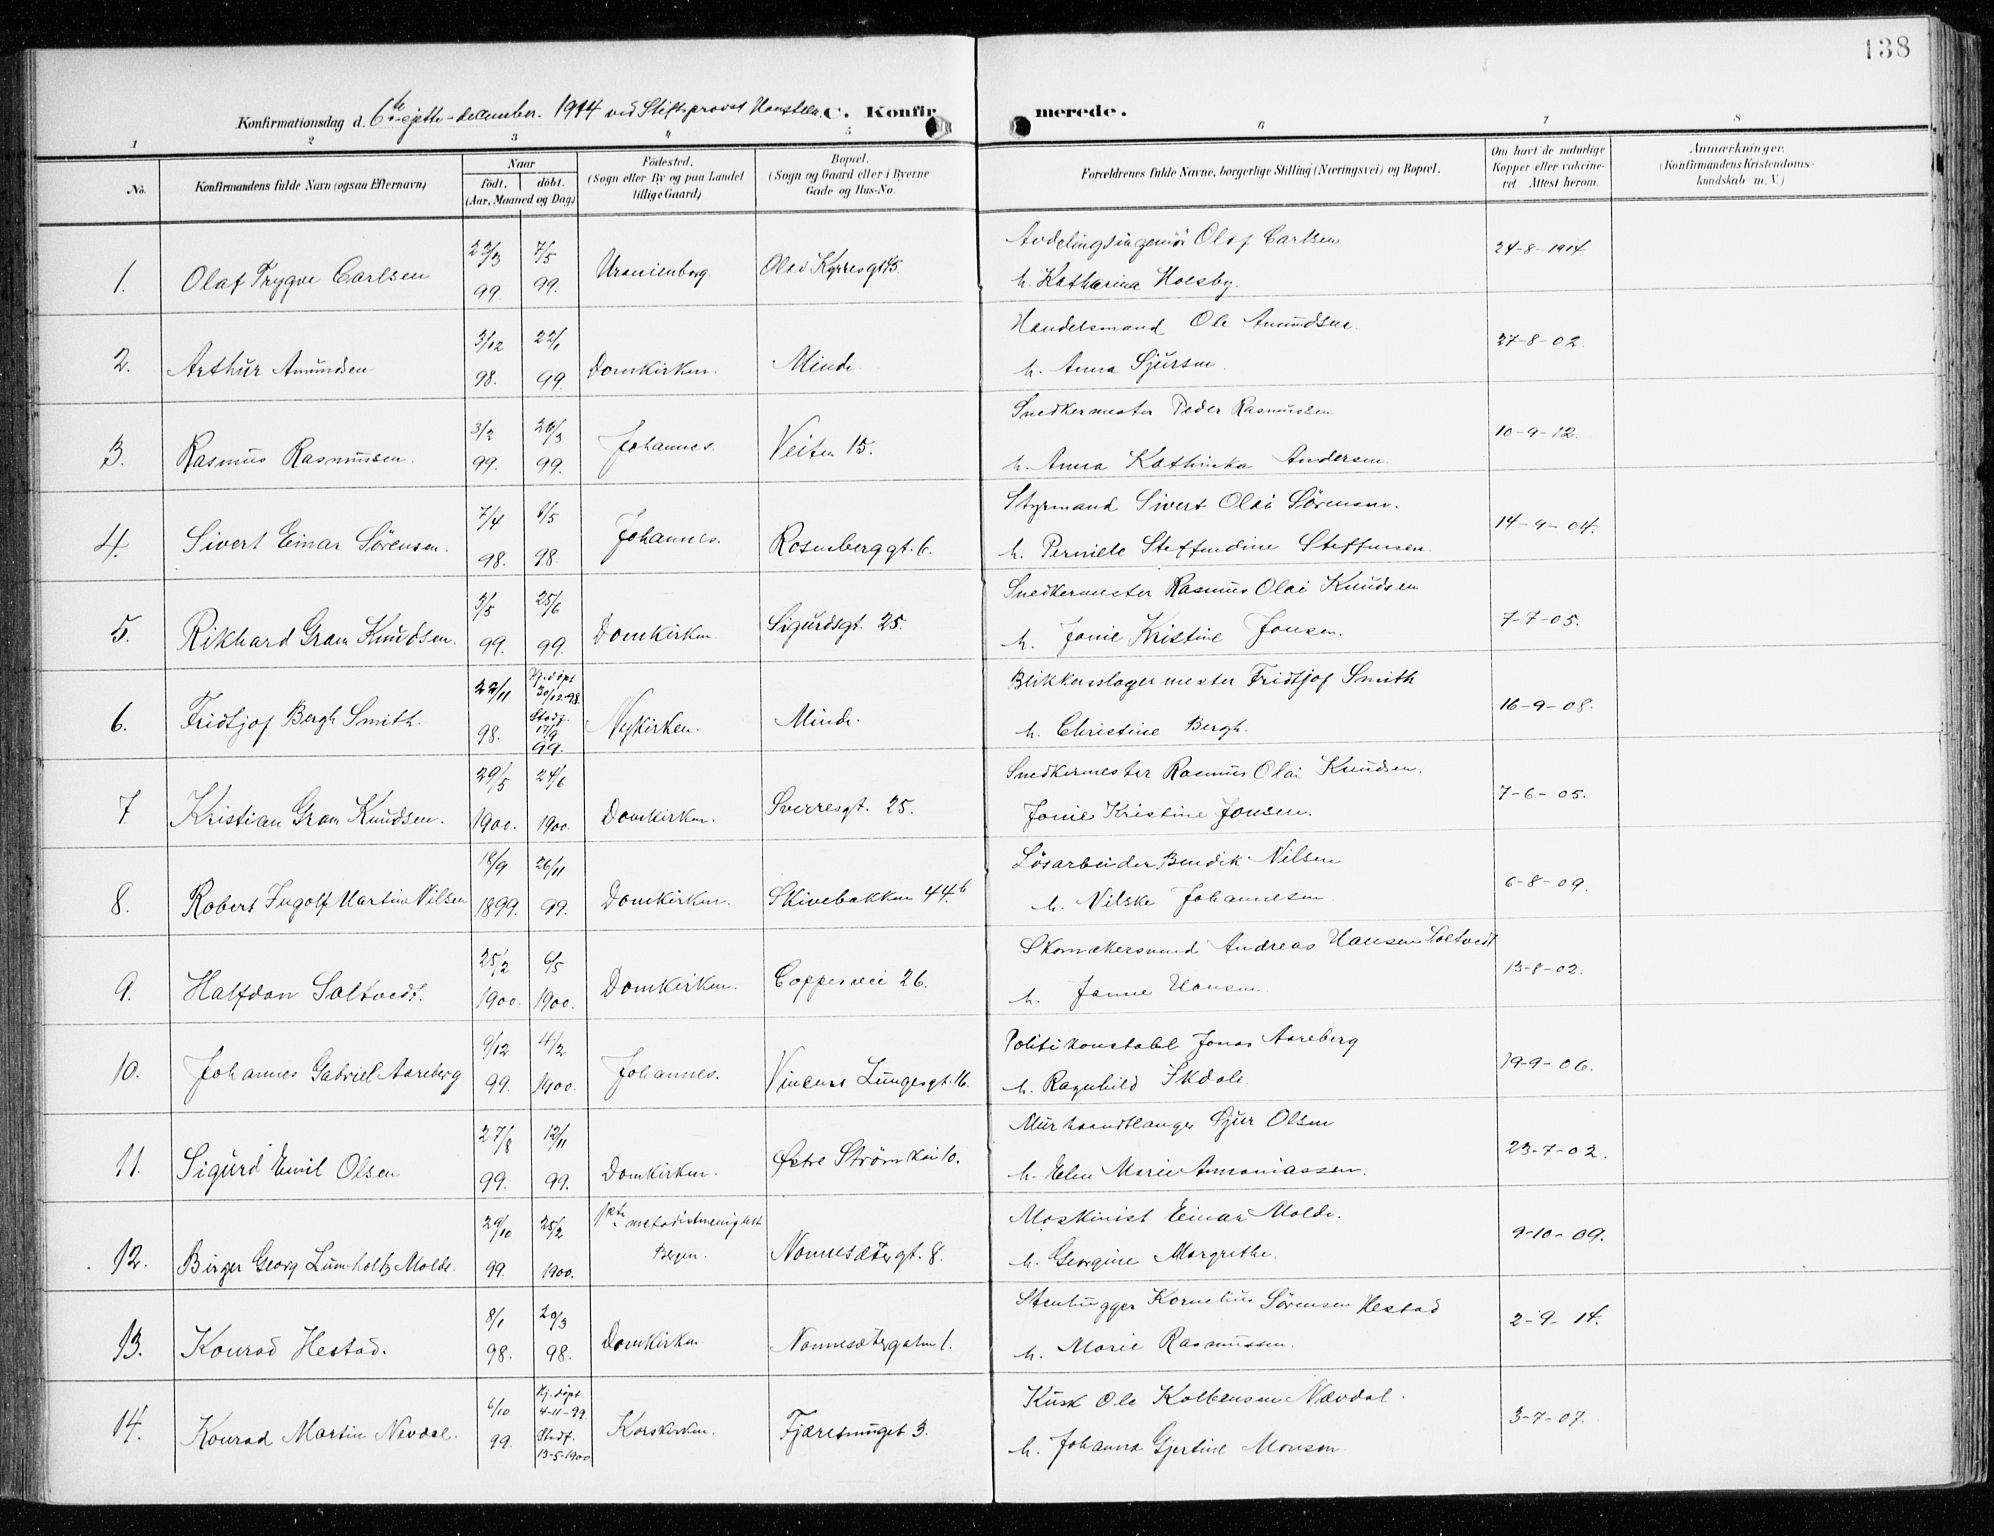 138
Konfirmationsdag d. 6te sjette december. 1914 ved Stiftsprovst C. Konfirmerede.
1 2 3 4 5 6 7 8
No.
Konfirmandens fulde Navn (ogsaa Efternavn)
Naar
født. døbt.
(Aar, Maaned og Dag)
Fødested.
(Sogn eller By og paa Landet
tillige Gaard)
Bopæl.
(Sogn og Gaard eller i Byerne
Gade og Hus-No.
Forældrenes fulde Navne, borgerlige Stilling (Næringsvei) og Bopæl.
Om havt de naturlige
Kopper eller vakcine-
ret Attest herom.
Anmærkninger.
(Konfirmandens Kristendoms-
kundskab m. V.)
1. Olaf Trygve Carlsen 22/3 99. 7/5 99. Uranienborg. Olav Kyrresgt 45. Avdelingsingeniør Olaf Carlsen
h. Katharina Holsby. 24-8-1914
2. Arthur Amundsen 3/12 98. 22/1 99. Domkirken. Minde. Handelsmand Ole Amundsen.
h. Anna Sjursen. 27-8-02.
3. Rasmus Rasmussen. 3/2 99. 26/3 99. Johannes. Veiten 15. Snedkermester Peder Rasmussen
h. Anna Kathinka Andersen 10-9-12.
4. Sivert Einar Sørensen. 7/4 98. 8/5 98. Johannes. Rosenberggt. 6. Styrmand Sivert Olai Sørensen.
h. Perniele Steffendine Steffensen. 14-9-04.
5. Rikhard Gram Knudsen. 3/5 99. 25/6 99. Domkirken. Sigurdsgt. 25. Snedkermester Rasmus Olai Knudsen
h. Jonie Kristine Jonsen. 7-7-05.
6. Fridtjof Bergh Smith. 22/11 98. Hj. døpt 30/12-98. Stadf. 17/9 99. Nykirken. Minde. Blikkenslagermester Fridtjof Smith
h. Christine Bergh. 16-9-08.
7 Kristian Gram Knudsen. 29/5 1900. 24/6 1900. Domkirken. Sverresgt. 25. Snedkermester Rasmus Olai Knudsen.
Jonie Kristine Jonsen. 7-6-05.
8. Robert Ingolf Martin Nilsen 18/9 1899. 26/11 99. Domkirken. Skivebakken 44b Løsarbeider Bendik Nilsen
h. Nilske Johannesen. 6-8-09.
9. Halfdan Soltvedt. 25/2 1900. 6/5 1900. Domkirken. Coppesvei 26. Skomakersvend Andreas Hansen Soltvedt
h. Janne Hansen. 13-8-02.
10. Johannes Gabriel Aareberg 9/12 99. 4/2 1900. Johannes. Vincens Lungesgt. 16. Politikonstabel Jonas Aareberg
h. Ragnhild Skdale. 19-9-06.
11. Sigurd Emil Olsen 27/8 99. 12/11 99. Domkirken. Østre Strømkai 10. Murhaandlanger Sjur Olsen
h. Elen Marie Annaniassen. 23-7-02.
12. Birger Georg Lumholtz Molde. 29/10 99. 25/2 1900. 1ste metodistmenighet
Bergen. Nonnesætergt. 8. Maskinist Einar Molde.
h. Georgine Margrethe. 9-10-09.
13. Konrad Hestad. 8/1 98. 20/3 98. Domkirken Nonnesætergaten 1. Stenhugger Kornelius Sørensen Hestad
h. Marie Rasmussen. 2-9-14.
14. Konrad Martin Nevdal. 6/10 99. Hj. døpt 4-11-99. Stadf. 13-5-1900 Korskirken. Fjæresmuget 3. Kusk Ole Kolbensen Nævdal.
h. Johanna Gjertine Monsen. 3-7-07.